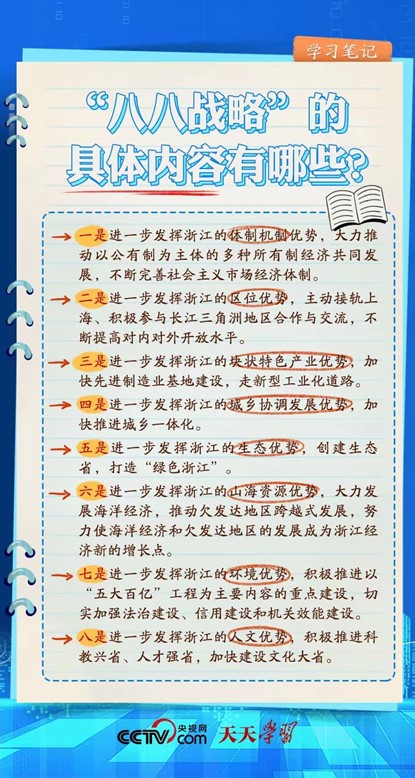 学习笔记
“八八战略”的
具体内容有哪些?
一是进一步发挥浙江的体制机制优势，大力推
动以公有制为主体的多种所有制经济共同发
展，不断完善社会主义市场经济体制。
二是进一步发挥浙江的区位优势，主动接轨上
海、积极参与长江三角洲地区合作与交流，不
断提高对内对外开放水平。
三是进一步发挥浙江的块状特色产业优势，加
快先进制造业基地建设，走新型工业化道路。
四是进一步发挥浙江的城乡协调发展优势，加
快推进城乡一体化。
五是进一步发挥浙江的生态优势，创建生态
省，打造“绿色浙江”。
六是进一步发挥浙江的山海资源优势，大力发
展海洋经济，推动欠发达地区跨越式发展，努
力使海洋经济和欠发达地区的发展成为浙江经
济新的增长点。
七是进一步发挥浙江的环境优势，积极推进以
“五大百亿”工程为主要内容的重点建设，切
实加强法治建设、信用建设和机关效能建设。
八是进一步发挥浙江的人文优势，积极推进科
教兴省、人才强省，加快建设文化大省。
CCTV.com 央视网 天天学习